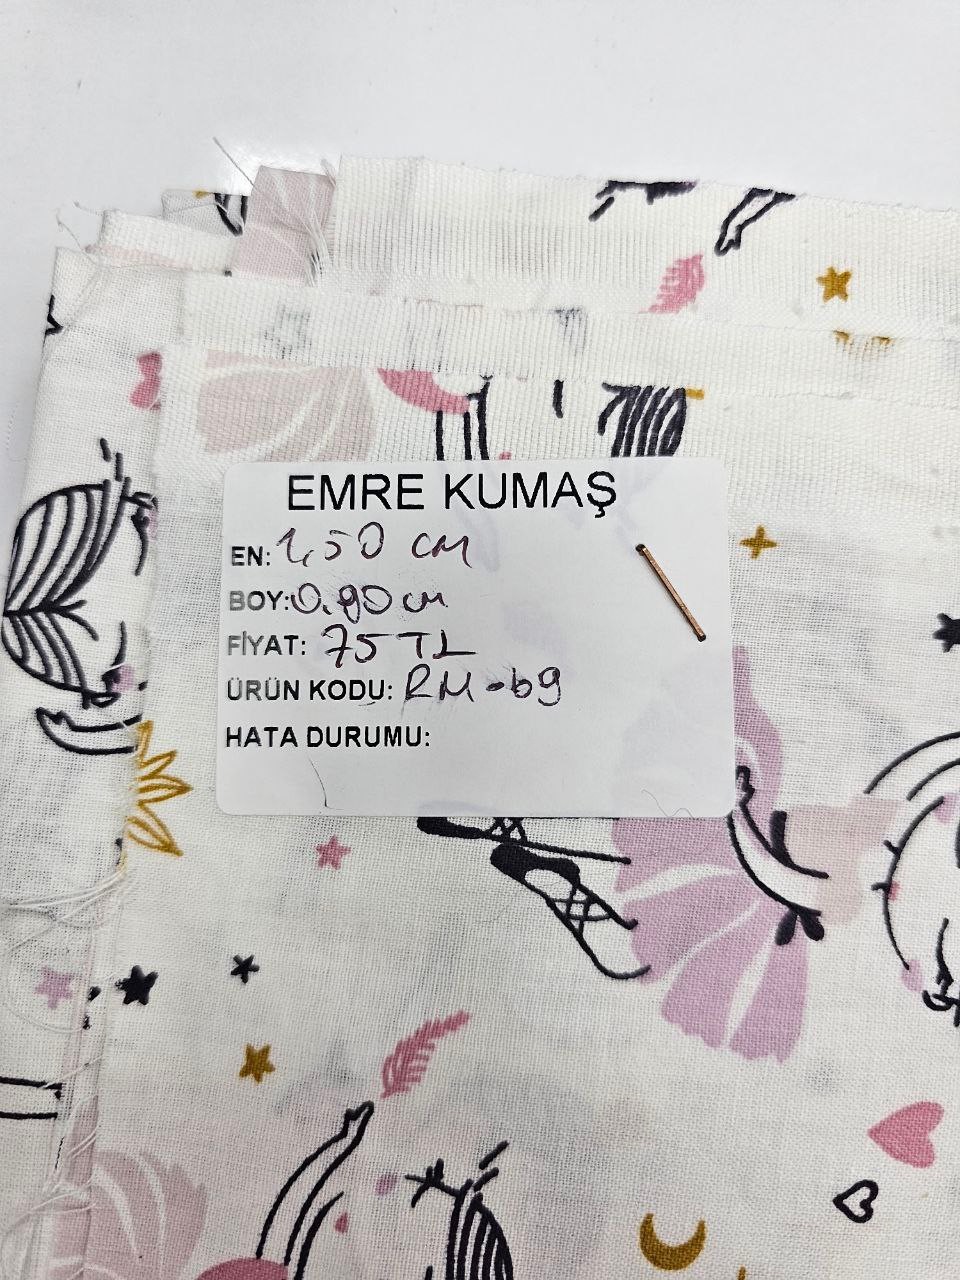 EMRE KUMAŞ
EN: 1,50 cm
BOY: 0.90 cm
FİYAT: 75 TL
ÜRÜN KODU: RM-69
HATA DURUMU: